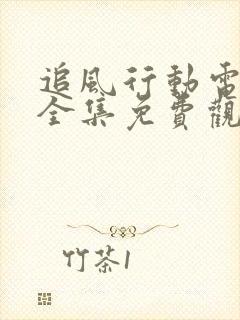 追風行動電
全集免費觀
竹茶1